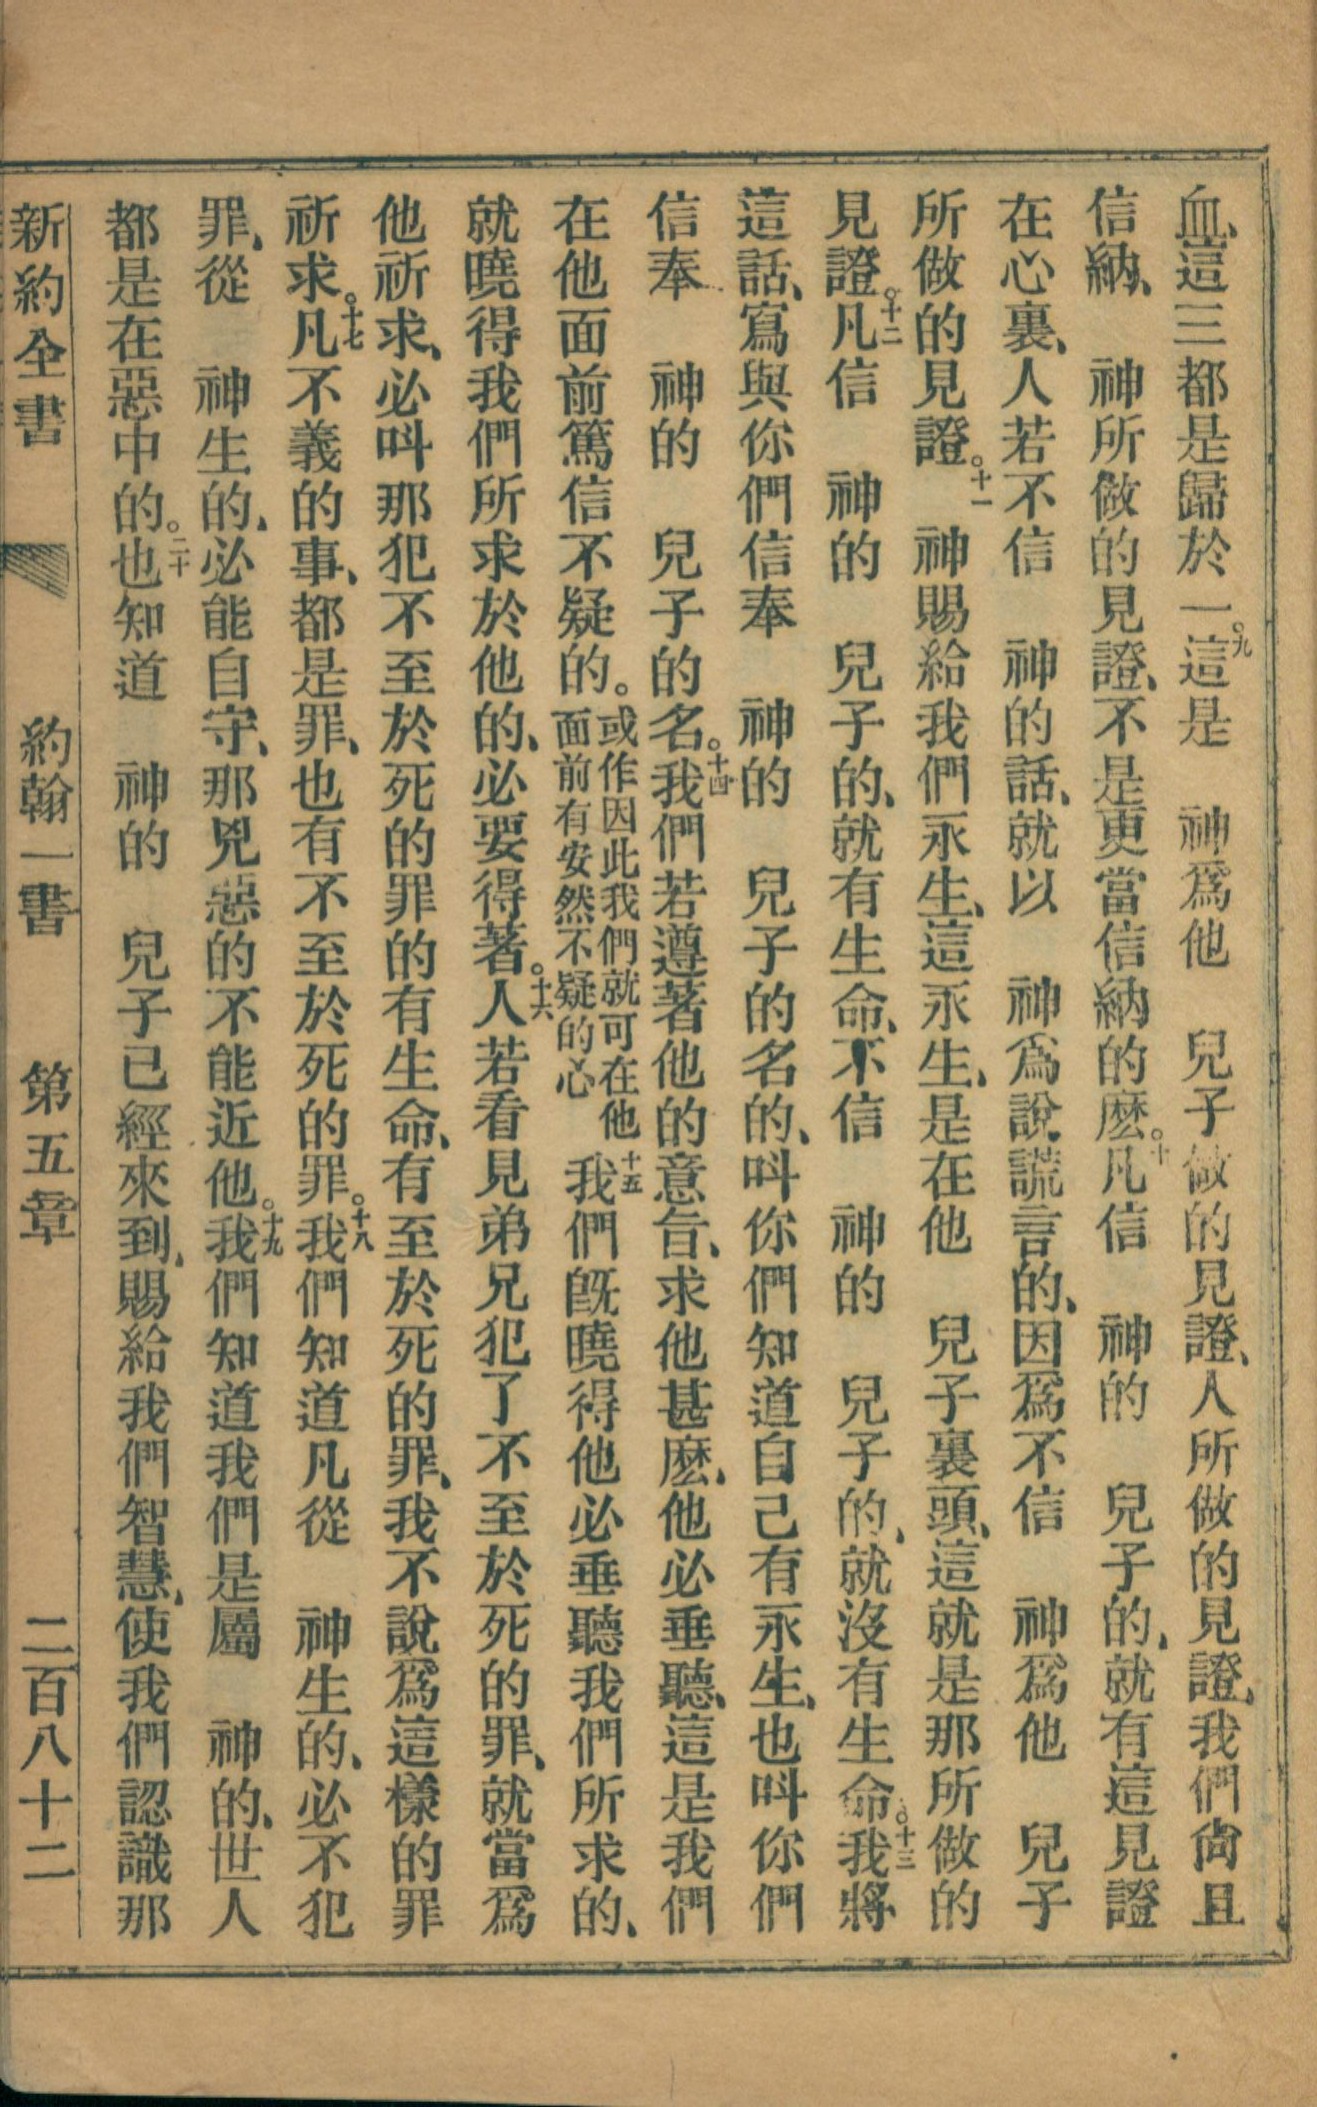 血、這三都是歸於一。九這是　神爲他　兒子做的見證、人所做的見證、我們尙且
信納、　神所做的見證、不是更當信納的麽。十凡信　神的　兒子的、就有這見證
在心裏、人若不信　神的話、就以　神爲說謊言的、因爲不信　神爲他　兒子
所做的見證。十一　神賜給我們永生、這永生、是在他　兒子裏頭、這就是那所做的
見證。十二凡信　神的　兒子的、就有生命、不信　神的　兒子的、就沒有生命。十三我將
這話、寫與你們信奉　神的　兒子的名的、叫你們知道自己有永生、也叫你們
信奉　神的　兒子的名。十四我們若遵著他的意旨、求他甚麽、他必垂聽、這是我們
在他面前篤信不疑的。或作因此我們就可在他面前有安然不疑的心　十五我們旣曉得他必垂聽我們所求的、
就曉得我們所求於他的、必要得著。十六人若看見弟兄犯了不至於死的罪、就當爲
他祈求、必叫那犯不至於死的罪的有生命、有至於死的罪、我不說爲這樣的罪
祈求。十七凡不義的事、都是罪、也有不至於死的罪。十八我們知道凡從　神生的、必不犯
罪、從　神生的、必能自守、那兇惡的不能近他。十九我們知道我們是屬　神的、世人
都是在惡中的。二十也知道　神的　兒子已經來到、賜給我們智慧、使我們認識那
新約全書　約翰一書　第五章　二百八十二